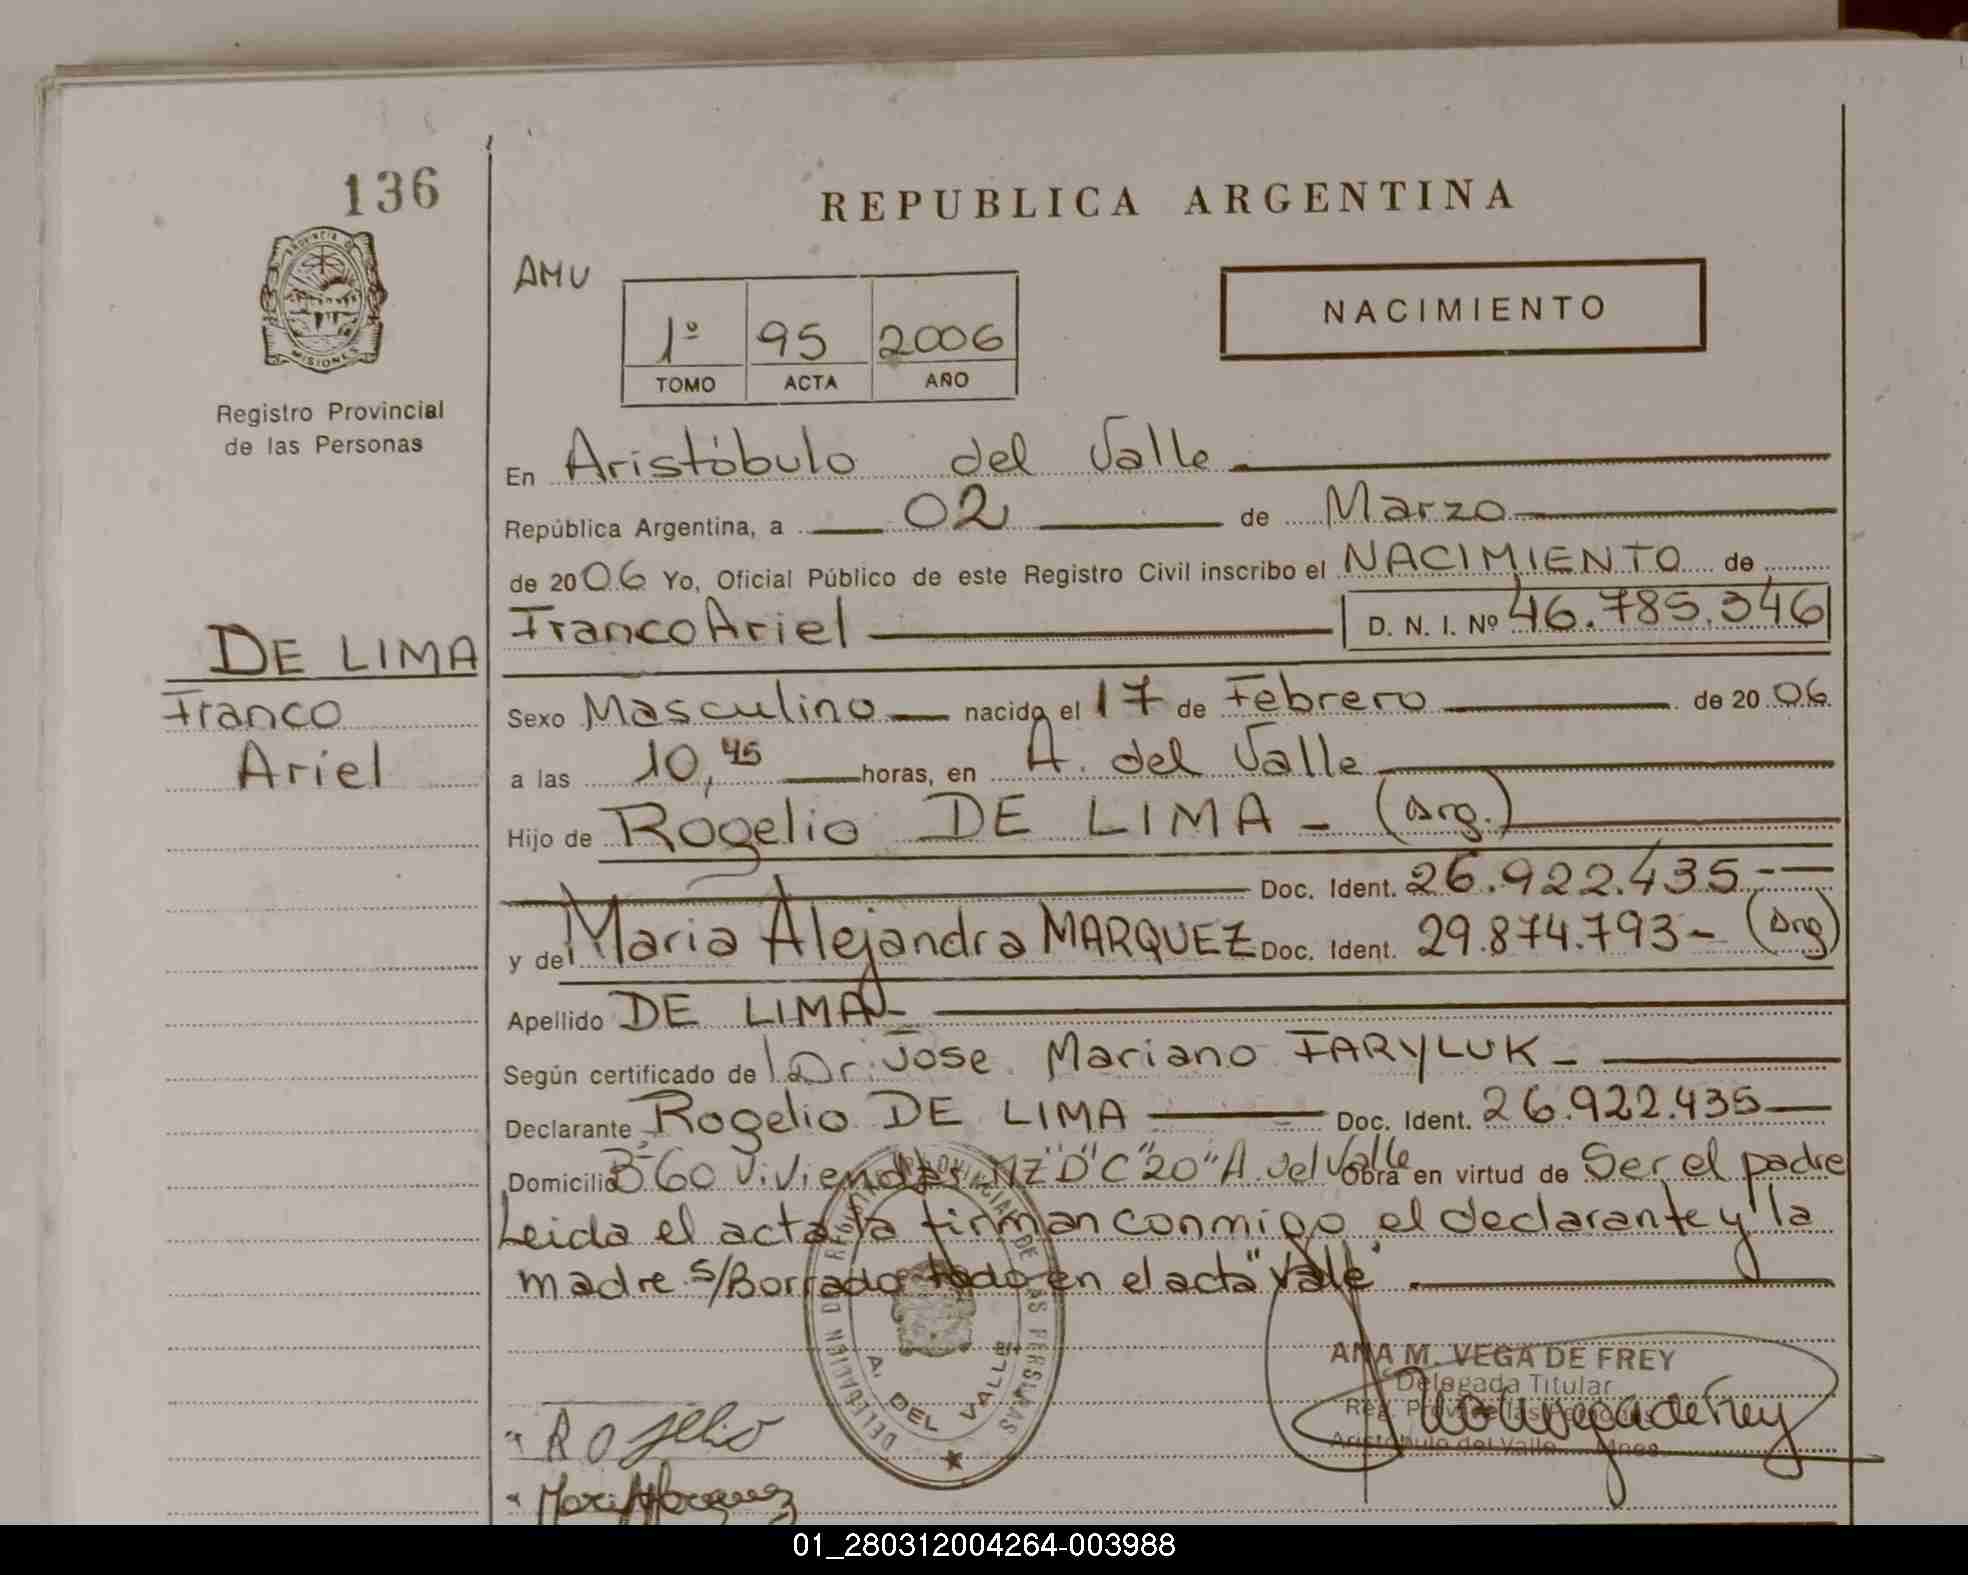 136
REPUBLICA ARGENTINA
PROVINCIA DE
MISIONES
Registro Provincial
de las Personas
AMU
1º 95 2006
TOMO ACTA AÑO
NACIMIENTO
En Aristóbulo del Valle
República Argentina, a 02 de Marzo
de 2006 Yo, Oficial Público de este Registro Civil inscribo el NACIMIENTO de
Franco Ariel D. N. I. Nº 46.785.346
DE LIMA
Franco
Ariel
Sexo Masculino nacido el 17 de Febrero de 2006
a las 10,45 horas, en A. del Valle
Hijo de Rogelio DE LIMA - (Arg.)
Doc. Ident. 26.922.435
y de Maria Alejandra MARQUEZ Doc. Ident. 29.874.793 - (Arg)
Apellido DE LIMA -
Según certificado de Dr. Jose Mariano FARYLUK -
Declarante Rogelio DE LIMA Doc. Ident. 26.922.435
Domicilio Bº 60 Viviendas MZ "D" C "20" A. del Valle Obra en virtud de Ser el padre
Leida el acta la firman conmigo el declarante y la
madre s/Borrado todo en el acta "Vale".
DELEGACION DE REGISTRO PROVINCIAL DE LAS PERSONAS
A. DEL VALLE
ANA M. VEGA DE FREY
Delegada Titular
Reg. Prov. de las Personas
Aristóbulo del Valle - Mnes.
Rogelio
01_280312004264-003988